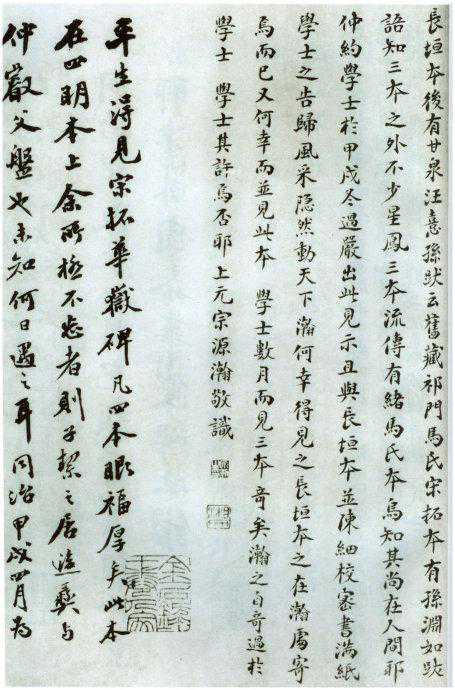 長垣本後有甘泉汪憙孫跋云舊藏祁門馬氏宋拓本有孫淵如跋
語知三本之外不少星鳳三本流傳有緒馬氏本焉知其尚在人間耶
仲約學士於甲戌冬過嚴出此見示且與長垣本並陳細校審書滿紙
學士之告歸風采隱然動天下瀚何幸得見之長垣本之在瀚處寄
焉而已又何幸而並見此本 學士數月而見三本奇矣瀚之自奇過於
學士 學士其許焉否耶上元宗源瀚敬識
平生得見宋拓華嶽碑凡四本眼福厚矣此本
在四明本上余所極不忘者則子絜之唐造彝與
仲嚴父盤也未知何日遇之耳同治甲戌四月為